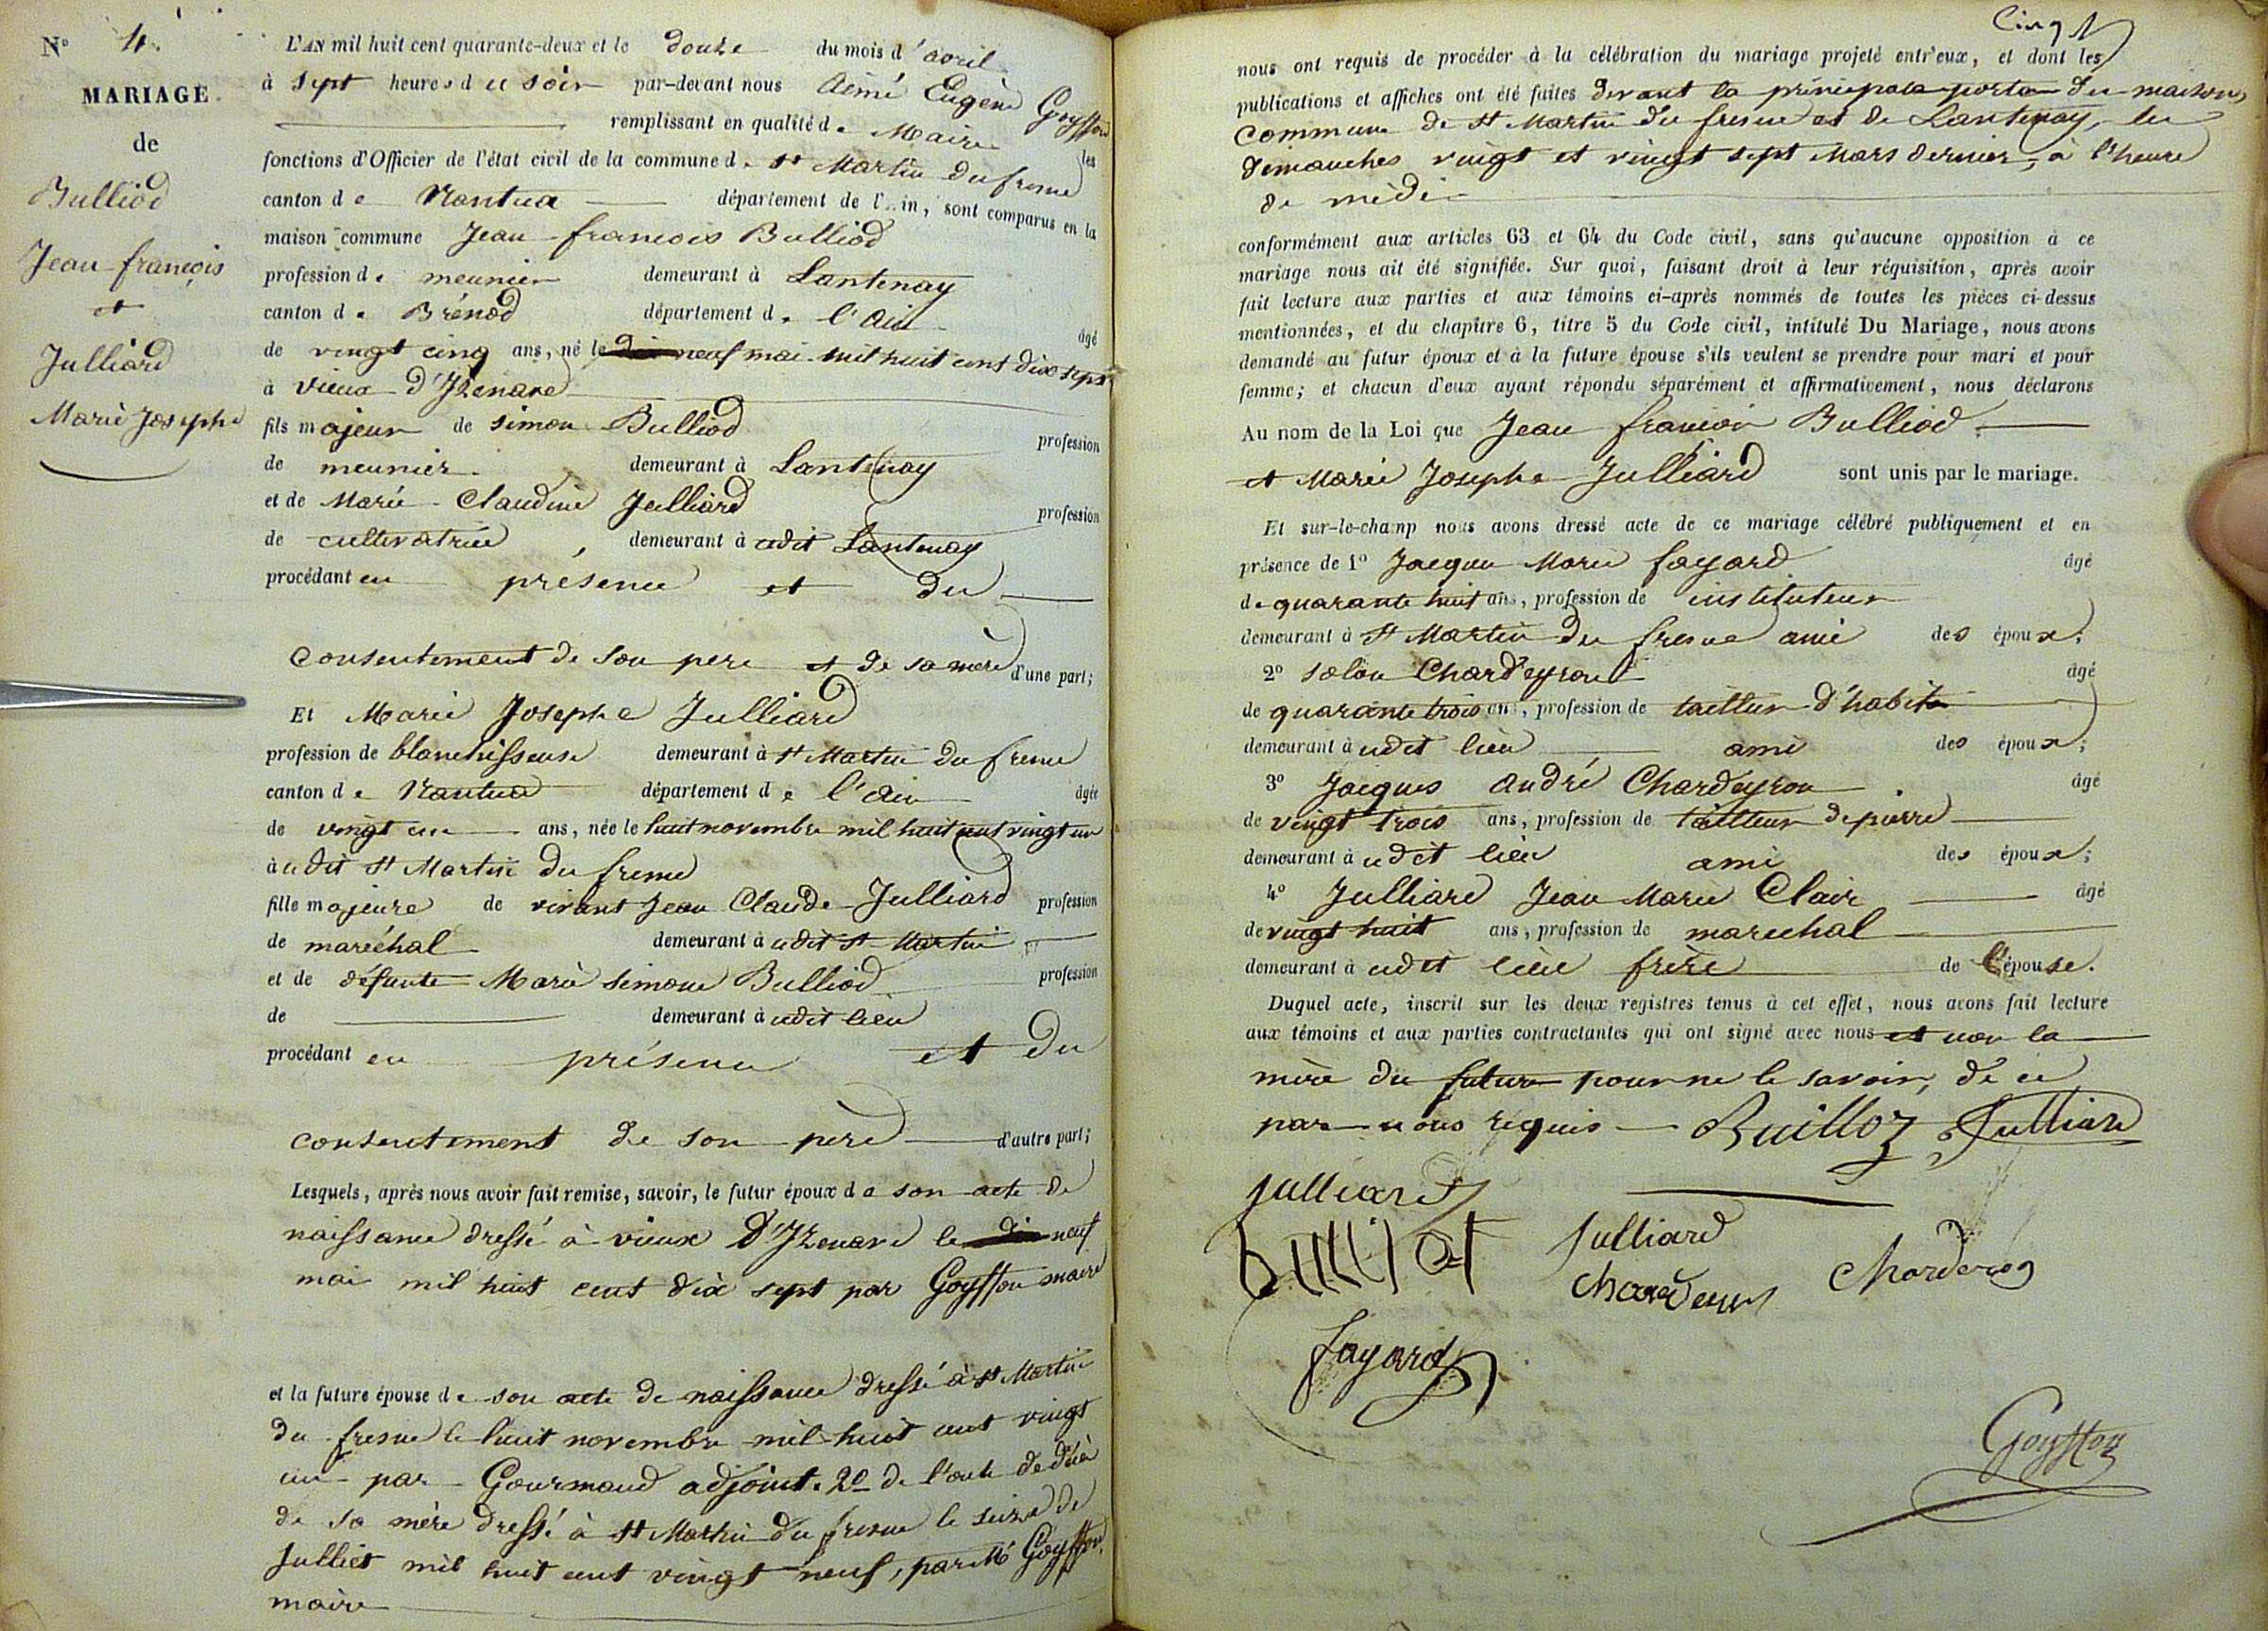 N° 4.
MARIAGE.
de
Bulliod
Jean-françois
et
Julliard
Marie Josephe
L'AN mil huit cent quarante-deux et le douze du mois d'avril
à sept heures du soir par-devant nous Aimé Eugène Goyffon
remplissant en qualité de Maire les
fonctions d'Officier de l'état civil de la commune de St Martin du fresne
canton de Nantua département de l'Ain, sont comparus en la
maison commune Jean-françois Bulliod
profession de meunier demeurant à Lantenay
canton de Brénod département de l'Ain âgé
de vingt cinq ans, né le neuf mai mil huit cent dix sept
à vieux d'Izenave
fils majeur de simon Bulliod profession
de meunier demeurant à Lantenay
et de Marie Claudine Julliard profession
de cultivatrice, demeurant à udit Lantenay
procédant en présence et du
consentement de son pere et de sa mere d'une part;
Et Marie Josephe Julliard
profession de blanchisseuse demeurant à St Martin du fresne
canton de Nantua département de l'Ain âgée
de vingt un ans, née le huit novembre mil huit cent vingt un
à udit St Martin du fresne
fille majeure de vivant Jean Claude Julliard profession
de maréchal demeurant à udit St Martin
et de défunte Marie simone Bulliod profession
de demeurant à udit lieu
procédant en présence et du
consentement de son pere d'autre part;
Lesquels, après nous avoir fait remise, savoir, le futur époux de son acte de
naissance dressé à vieux d'Izenave le neuf
mai mil huit cent dix sept par Goyffon maire
et la future épouse de son acte de naissance dressé à St Martin
du fresne le huit novembre mil huit cent vingt
un par Gourmand adjoint. 2° de l'acte de décès
de sa mère dressé à St Martin du fresne le seize de
Julliet mil huit cent vingt neuf, par Mr Goyffon,
maire
Cinq
nous ont requis de procéder à la célébration du mariage projeté entr'eux, et dont les
publications et affiches ont été faites devant la principale porte des maisons
commune de St Martin du fresne et de Lantenay, les
dimanches vingt et vingt sept Mars dernier, à l'heure
de midi
conformément aux articles 63 et 64 du Code civil, sans qu'aucune opposition à ce
mariage nous ait été signifiée. Sur quoi, faisant droit à leur réquisition, après avoir
fait lecture aux parties et aux témoins ci-après nommés de toutes les pièces ci-dessus
mentionnées, et du chapitre 6, titre 5 du Code civil, intitulé Du Mariage, nous avons
demandé au futur époux et à la future épouse s'ils veulent se prendre pour mari et pour
femme; et chacun d'eux ayant répondu séparément et affirmativement, nous déclarons
Au nom de la Loi que Jean françois Bulliod
et Marie Josephe Julliard sont unis par le mariage.
Et sur-le-champ nous avons dressé acte de ce mariage célébré publiquement et en
présence de 1° Jacques Marie fayard âgé
de quarante huit ans, profession de instituteur
demeurant à St Martin du fresne ami des époux;
2° solon Chardeyron âgé
de quarante trois ans, profession de tailleur d'habits
demeurant à udit lieu ami des époux;
3° Jacques André Chardeyron âgé
de vingt trois ans, profession de tailleur de pierre
demeurant à udit lieu ami des époux;
4° Julliard Jean Marie Clair âgé
de vingt huit ans, profession de marechal
demeurant à udit lieu frère de l'épouse.
Duquel acte, inscrit sur les deux registres tenus à cet effet, nous avons fait lecture
aux témoins et aux parties contractantes qui ont signé avec nous et non la
mère du futur pour ne le savoir, de ce
par nous requis Builloz Julliard
julliard
bulliot Julliard
Chardeyron Charderon
fayard
Goyffon